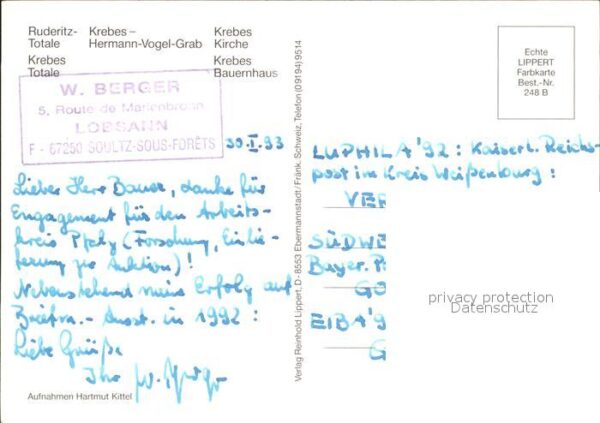 Ruderitz- Krebes – Krebes
Totale Hermann-Vogel-Grab Kirche
Krebes Krebes
Totale Bauernhaus
W. BERGER
5, Route de Marienbronn
LOBSANN
F - 67250 SOULTZ-SOUS-FORÊTS
30.I.93
Lieber Herr Bauer, danke für
Engagement für den Arbeits-
kreis (Forschung, Einlie-
ferung zur Auktion)!
Nebenstehend meine Erfolg auf
Briefm.- Ausst. in 1992:
Liebe Grüße
Ihr W.
Aufnahmen Hartmut Kittel
Verlag Reinhold Lippert, D-8553 Ebermannstadt/Fränk. Schweiz, Telefon (09194) 9514
Echte
LIPPERT
Farbkarte
Best.-Nr.
248 B
LUPHILA '92: Kaiserl. Reichs-
post im Kreis Weißenburg:
VER
SÜDWE
Bayer. P
GO
EIBA '9
G
privacy protection
Datenschutz